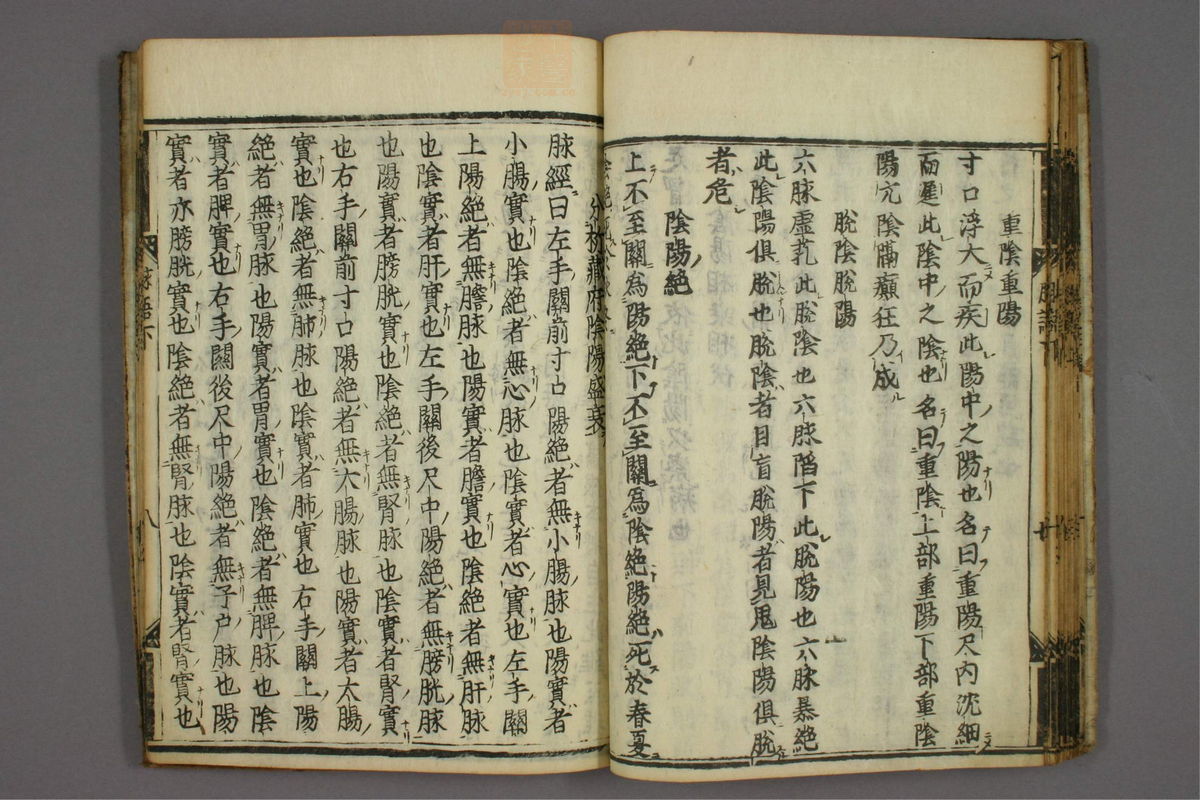 重陰重陽
寸口浮大而疾此陽中之陽也名曰重陽尺内沈細
而遲此陰中之陰也名曰重陰上部重陽下部重陰
陽亢陰隔癲狂乃成
脫陰脫陽
六脉虚芤此脫陰也六脉陷下此脫陽也六脉暴絶
此陰陽俱脫也脫陰者目盲脫陽者見鬼陰陽俱脫
者危
陰陽絶
上不至關爲陽絶下不至關爲陰絶陽絶死於春夏
分析藏府陰陽盛衰
脉經曰左手關前寸口陽絶者無小腸脉也陽實者
小腸實也陰絶者無心脉也陰實者心實也左手關
上陽絶者無膽脉也陽實者膽實也陰絶者無肝脉
也陰實者肝實也左手關後尺中陽絶者無膀胱脉
也陽實者膀胱實也陰絶者無腎脉也陰實者腎實
也右手關前寸口陽絶者無大腸脉也陽實者太腸
實也陰絶者無肺脉也陰實者肺實也右手關上陽
絶者無胃脉也陽實者胃實也陰絶者無脾脉也陰
實者脾實也右手關後尺中陽絶者無子户脉也陽
實者亦膀胱實也陰絶者無腎脉也陰實者腎實也